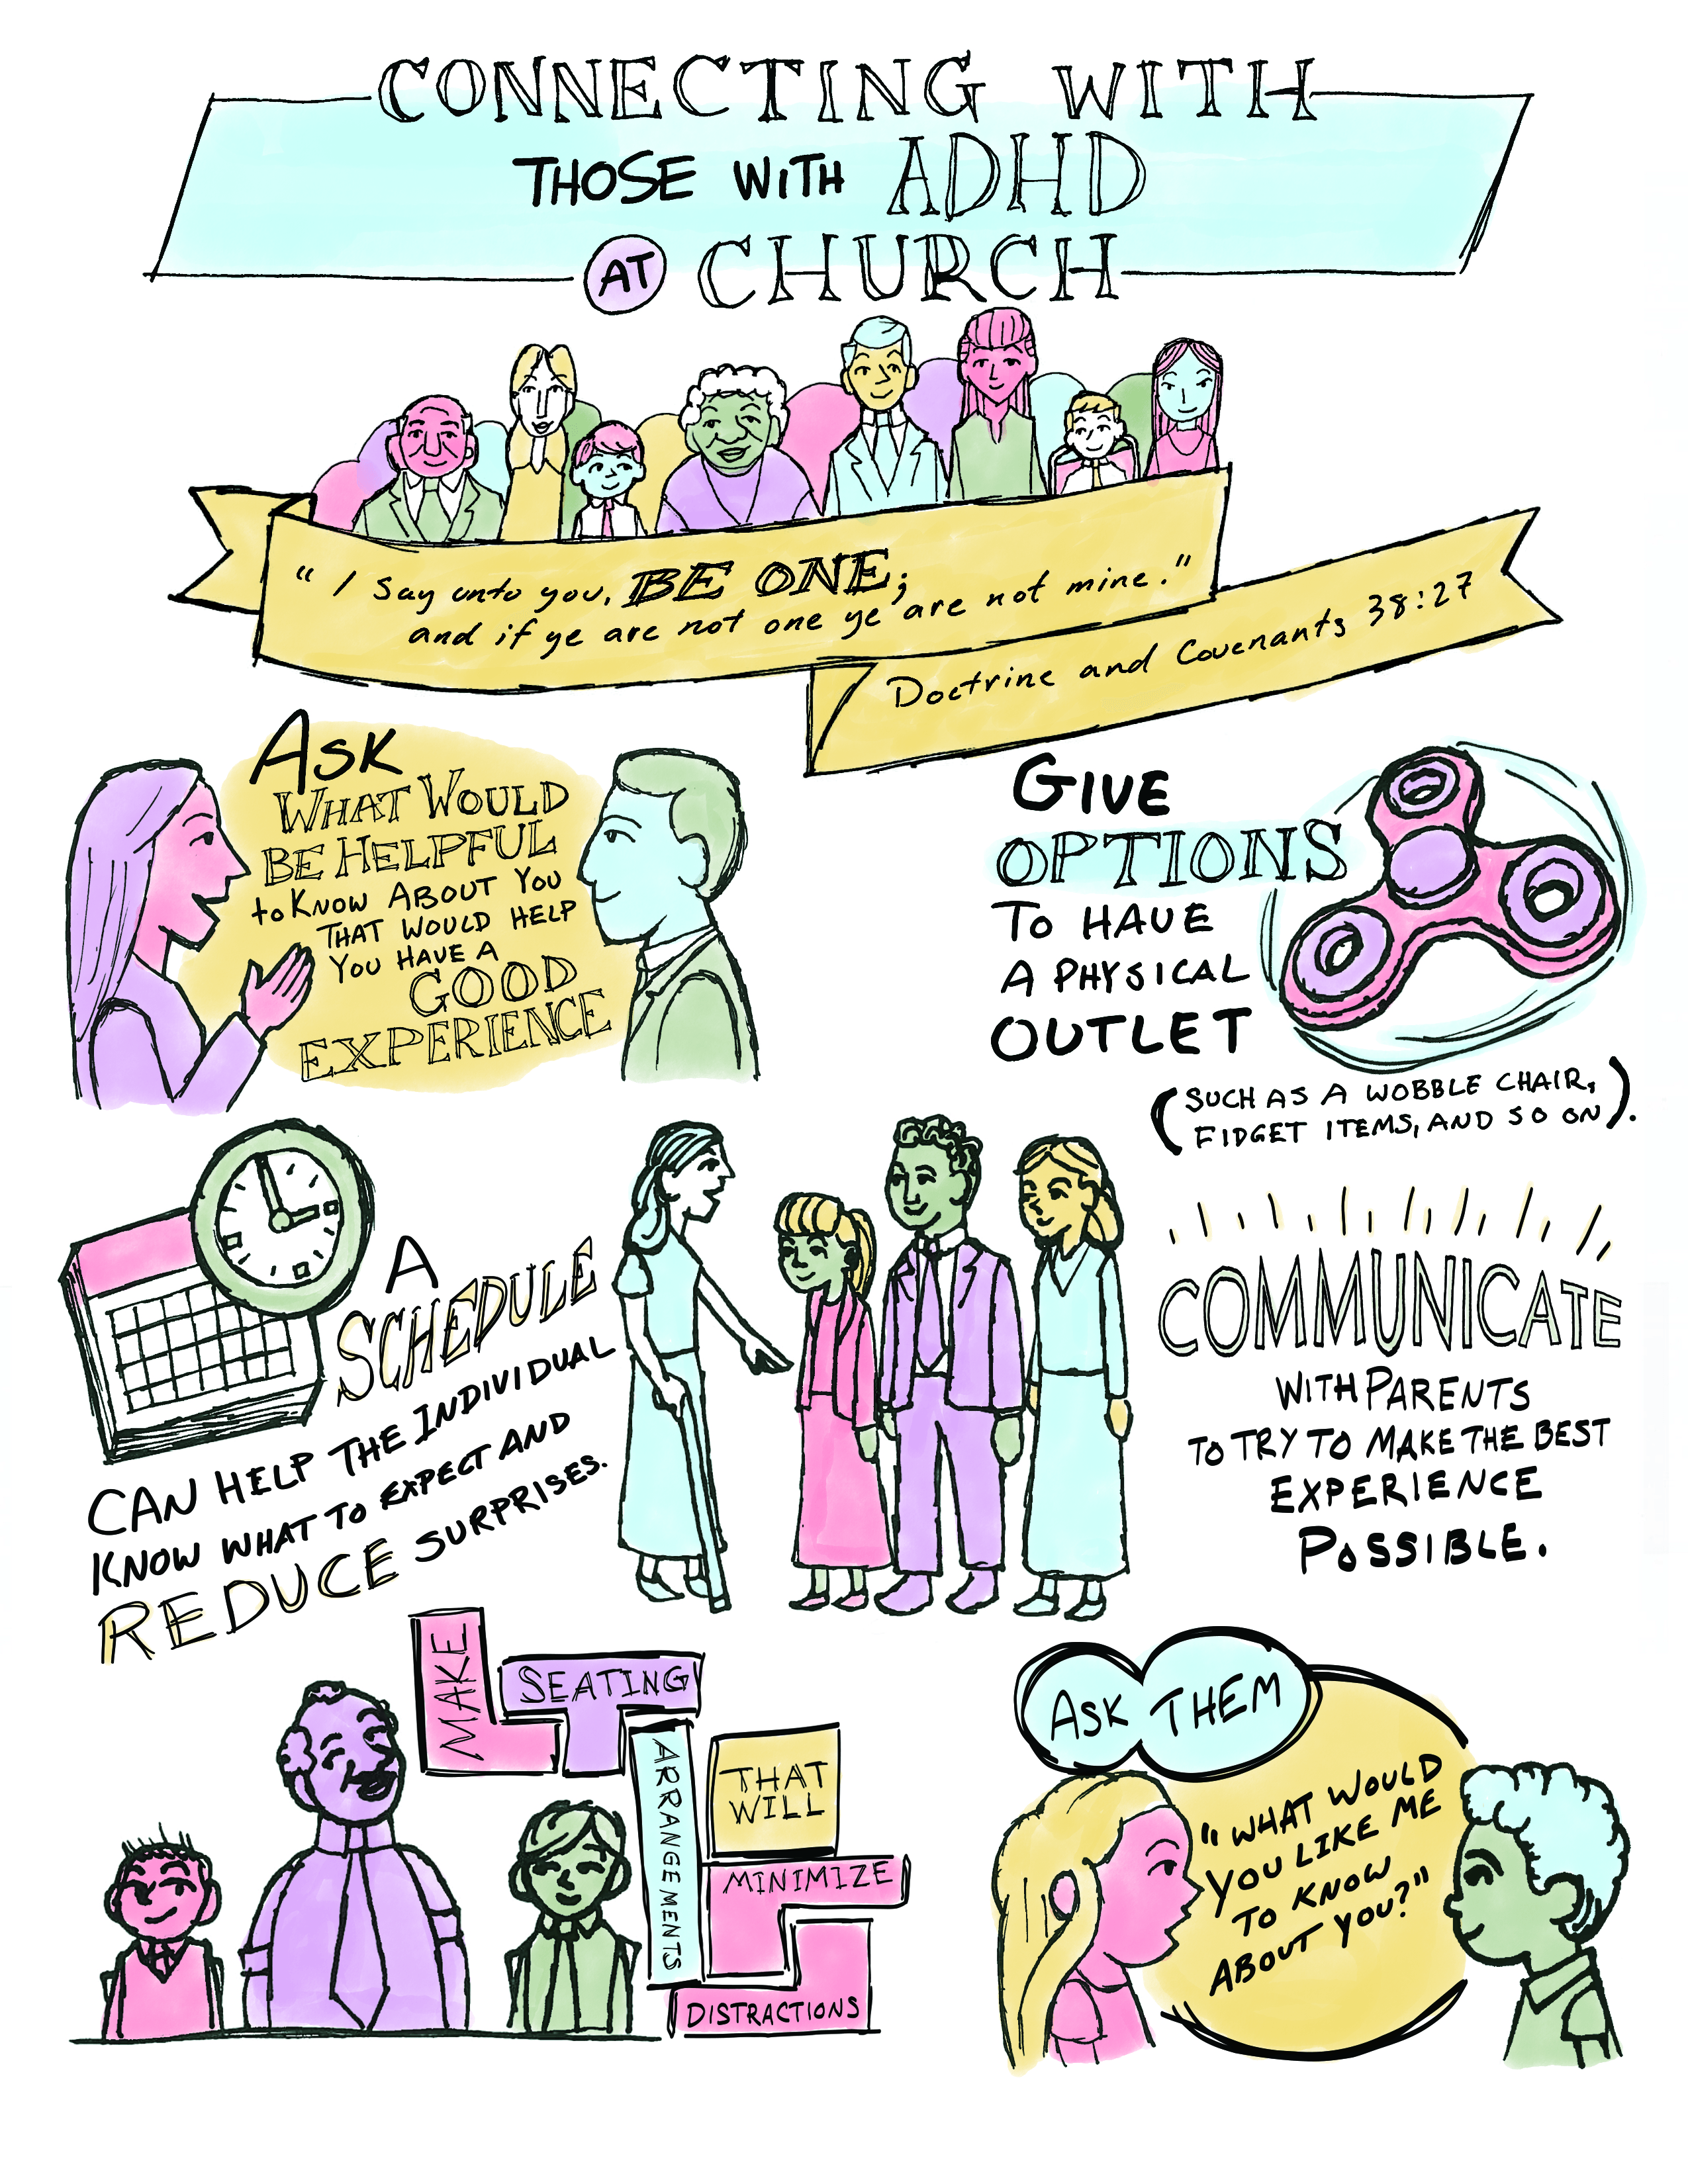 CONNECTING WITH
THOSE WITH ADHD
AT CHURCH
"I Say unto you, BE ONE;
and if ye are not one ye are not mine."
Doctrine and Covenants 38:27
ASK
WHAT WOULD
BE HELPFUL
to KNOW ABOUT YOU
THAT WOULD HELP
YOU HAVE A
GOOD
EXPERIENCE
GIVE
OPTIONS
TO HAVE
A PHYSICAL
OUTLET
(SUCH AS A WOBBLE CHAIR,
FIDGET ITEMS, AND SO ON).
A
SCHEDULE
CAN HELP THE INDIVIDUAL
KNOW WHAT TO EXPECT AND
REDUCE SURPRISES.
COMMUNICATE
WITH PARENTS
TO TRY TO MAKE THE BEST
EXPERIENCE
POSSIBLE.
MAKE
SEATING
ARRANGEMENTS
THAT
WILL
MINIMIZE
DISTRACTIONS
ASK THEM
"WHAT WOULD
YOU LIKE ME
TO KNOW
ABOUT YOU?"